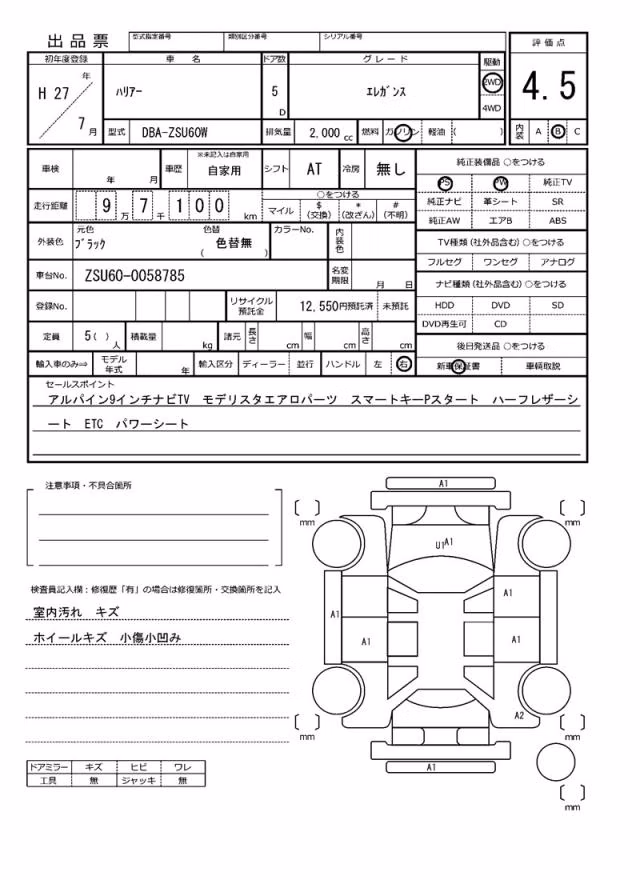 出品票
型式指定番号 類別区分番号 シリアル番号
評価点
初年度登録 車名 ドア数 グレード 駆動
H 27 年 ハリアー 5 D エレガンス 2WD 4WD
4.5
7 月 型式 DBA-ZSU60W 排気量 2,000 cc 燃料 ガソリン 軽油 ( ) 内装 A B C
車検 年 月 車歴 ※未記入は自家用 自家用 シフト AT 冷房 無し
純正装備品 ○をつける
PS PW 純正TV
走行距離 9 万 7 千 1 0 0 km
○をつける
マイル $(交換) *(改ざん) #(不明)
純正ナビ 革シート SR
純正AW エアB ABS
外装色 元色 ブラック 色替 ( 色替無 ) カラーNo. 内装色
TV種類(社外品含む)○をつける
フルセグ ワンセグ アナログ
車台No. ZSU60-0058785 名変期限 月 日
ナビ種類(社外品含む)○をつける
登録No. リサイクル預託金 12,550円預託済 未預託
HDD DVD SD
DVD再生可 CD
定員 5( )人 積載量 kg 諸元 長さ cm 幅 cm 高さ cm
後日発送品 ○をつける
輸入車のみ⇒ モデル年式 年 輸入区分 ディーラー 並行 ハンドル 左 右
新車保証書 車輌取説
セールスポイント
アルパイン9インチナビTV モデリスタエアロパーツ スマートキーPスタート ハーフレザーシ
ート ETC パワーシート
注意事項・不具合箇所
検査員記入欄:修復歴「有」の場合は修復箇所・交換箇所を記入
室内汚れ キズ
ホイールキズ 小傷小凹み
ドアミラー キズ ヒビ ワレ
工具 無 ジャッキ 無
A1
mm
mm
U1 A1
A1
A1
A1
A1
A2
mm
mm
A1
mm